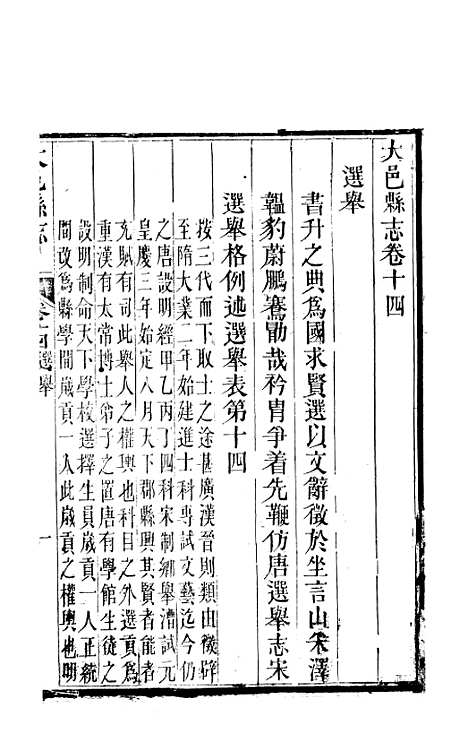 大邑縣志卷十四
選舉
書升之典為國求賢選以文辭徵於坐言山木澤
韞豹蔚鵬騫勖哉衿冑爭着先鞭仿唐選舉志宋
選舉格例述選舉表第十四
按三代而上取士之途甚廣漢晉則類由徵辟
至隋大業二年始建進士科專試文藝迄今仍
之唐設明經甲乙丙丁四科宋制鄉舉漕試元
皇慶三年始定八月天下郡縣興其賢者能者
充賦有司此舉人之權輿也科目之外選貢為
重漢有太常博士弟子之置唐有學館生徒之
設明制命天下學校選擇生員歲貢一人正統
間改為縣學間歲貢一人此歲貢之權輿也明
大邑縣志
卷十四選舉
一